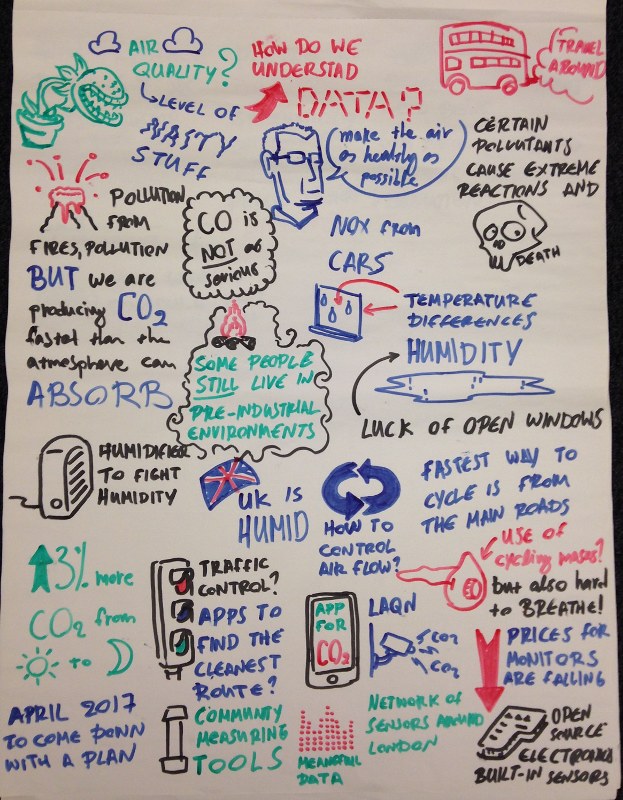 AIR
QUALITY?
LEVEL OF
NASTY
STUFF
HOW DO WE
UNDERSTAD
DATA?
TRAVEL
AROUND
make the air
as healthy as
possible
CERTAIN
POLLUTANTS
CAUSE EXTREME
REACTIONS AND
DEATH
POLLUTION
FROM
FIRES, POLLUTION
BUT we are
producing CO2
faster than the
atmosphere can
ABSORB
CO is
NOT as
serious
NOX from
CARS
TEMPERATURE
DIFFERENCES
HUMIDITY
LUCK OF OPEN WINDOWS
SOME PEOPLE
STILL LIVE IN
PRE-INDUSTRIAL
ENVIRONMENTS
HUMIDIFIER
TO FIGHT
HUMIDITY
UK IS
HUMID
HOW TO
CONTROL
AIR FLOW?
FASTEST WAY TO
CYCLE IS FROM
THE MAIN ROADS
USE OF
cycling masks?
but also hard
to BREATHE!
3% more
CO2 from
to
TRAFFIC
CONTROL?
APPS TO
FIND THE
CLEANEST
ROUTE?
APP
FOR
CO2
LAQN
CO2
CO2
NETWORK OF
SENSORS AROUND
LONDON
PRICES FOR
MONITORS
ARE FALLING
APRIL 2017
TO COME DOWN
WITH A PLAN
COMMUNITY
MEASURING
TOOLS
MEANINGFUL
DATA
OPEN
SOURCE
ELECTRONICS
BUILT-IN SENSORS